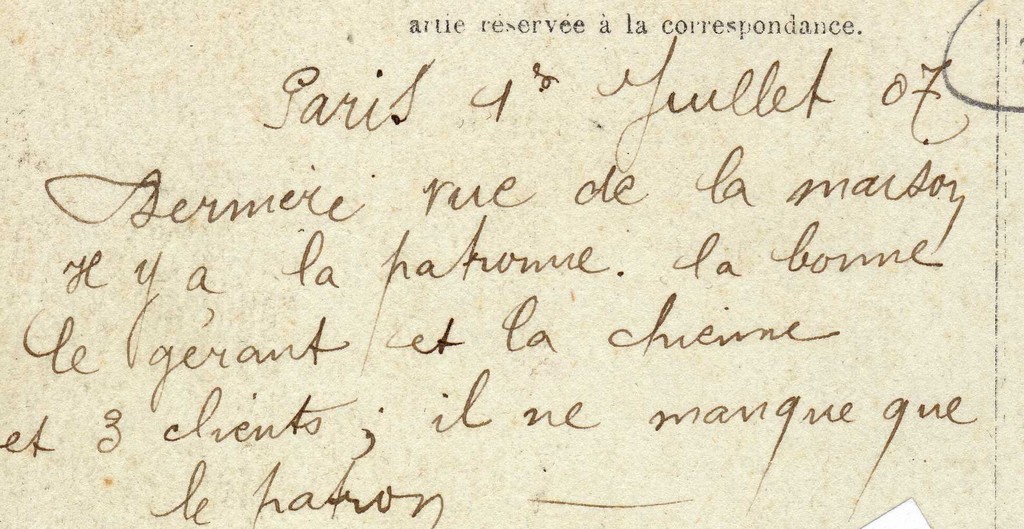 artie réservée à la correspondance.
Paris 1er Juillet 07
Dernière vue de la maison
Il y a la patronne. la bonne
le gérant et la chienne
et 3 clients ; il ne manque que
le patron —